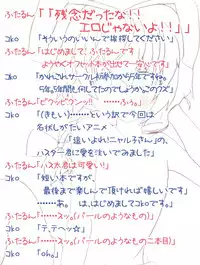 ふたるん「「残念だったな！！
エロじゃないよ！！」」
コko 「そういうのいいんで挨拶してください」
ふたるん「はじめまして、ふたるんです
ようやくオフセット本が出せて一安心です」
コko 「かれこれサークル参加から5年ですね。
5年も5年間も何してたのでしょうかこのクズ」
ふたるん「ビクッビクンッ!! ……ふぅ。」
コko 「(きもい)………という訳で今回は
名伏しがたいアニメ
「這いよれ!ニャル子さん」の、
ハスター君に愛を注いでみました」
ふたるん「ハス太君は可愛い!」
コko 「短い本ですが、
最後まで楽しんで頂ければ嬉しいです」
……あ。 は、はじめましてコkoです。」
ふたるん「……スッ。(バールのようなもの)」
コko 「テ、テヘッ☆」
ふたるん「……スッ。(バールのようなもの二本目)」
コko 「oh。」